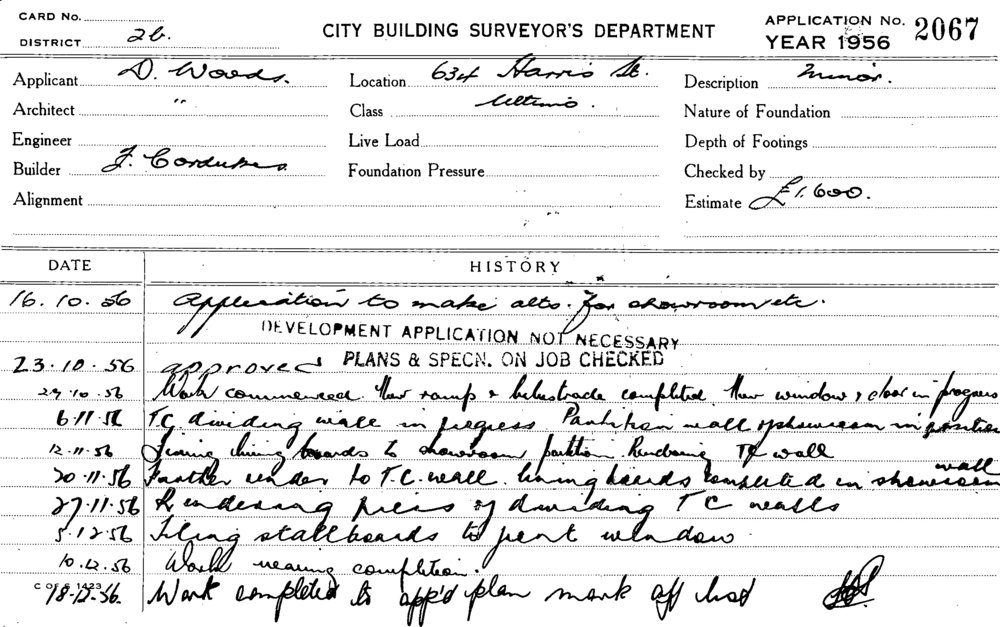 CARD No.
DISTRICT 26.
CITY BUILDING SURVEYOR'S DEPARTMENT
APPLICATION No. 2067
YEAR 1956
Applicant D. Woods.
Location 634 Harris St.
Description Minor.
Architect "
Class Ultimo.
Nature of Foundation
Engineer
Live Load
Depth of Footings
Builder J. Cordukes.
Foundation Pressure
Checked by
Alignment
Estimate £1,600.
DATE HISTORY
16.10.56 Application to make alts. for showroom etc.
DEVELOPMENT APPLICATION NOT NECESSARY
PLANS & SPECN. ON JOB CHECKED
23.10.56 approved
29.10.56 Work commenced New ramp & balustrade completed New window & door in progress
6.11.56 TC dividing wall in progress Partition wall of showroom in position
12.11.56 Fixing lining boards to showroom partition. Rendering TC wall
20.11.56 Further render to T.C. wall. lining boards completed in showroom wall
27.11.56 Rendering piers of dividing TC walls
5.12.56 Tiling stallboards to front window
10.12.56 Work nearing completion.
C OF S 1423
18.12.56. Work completed to app'd plan mark off